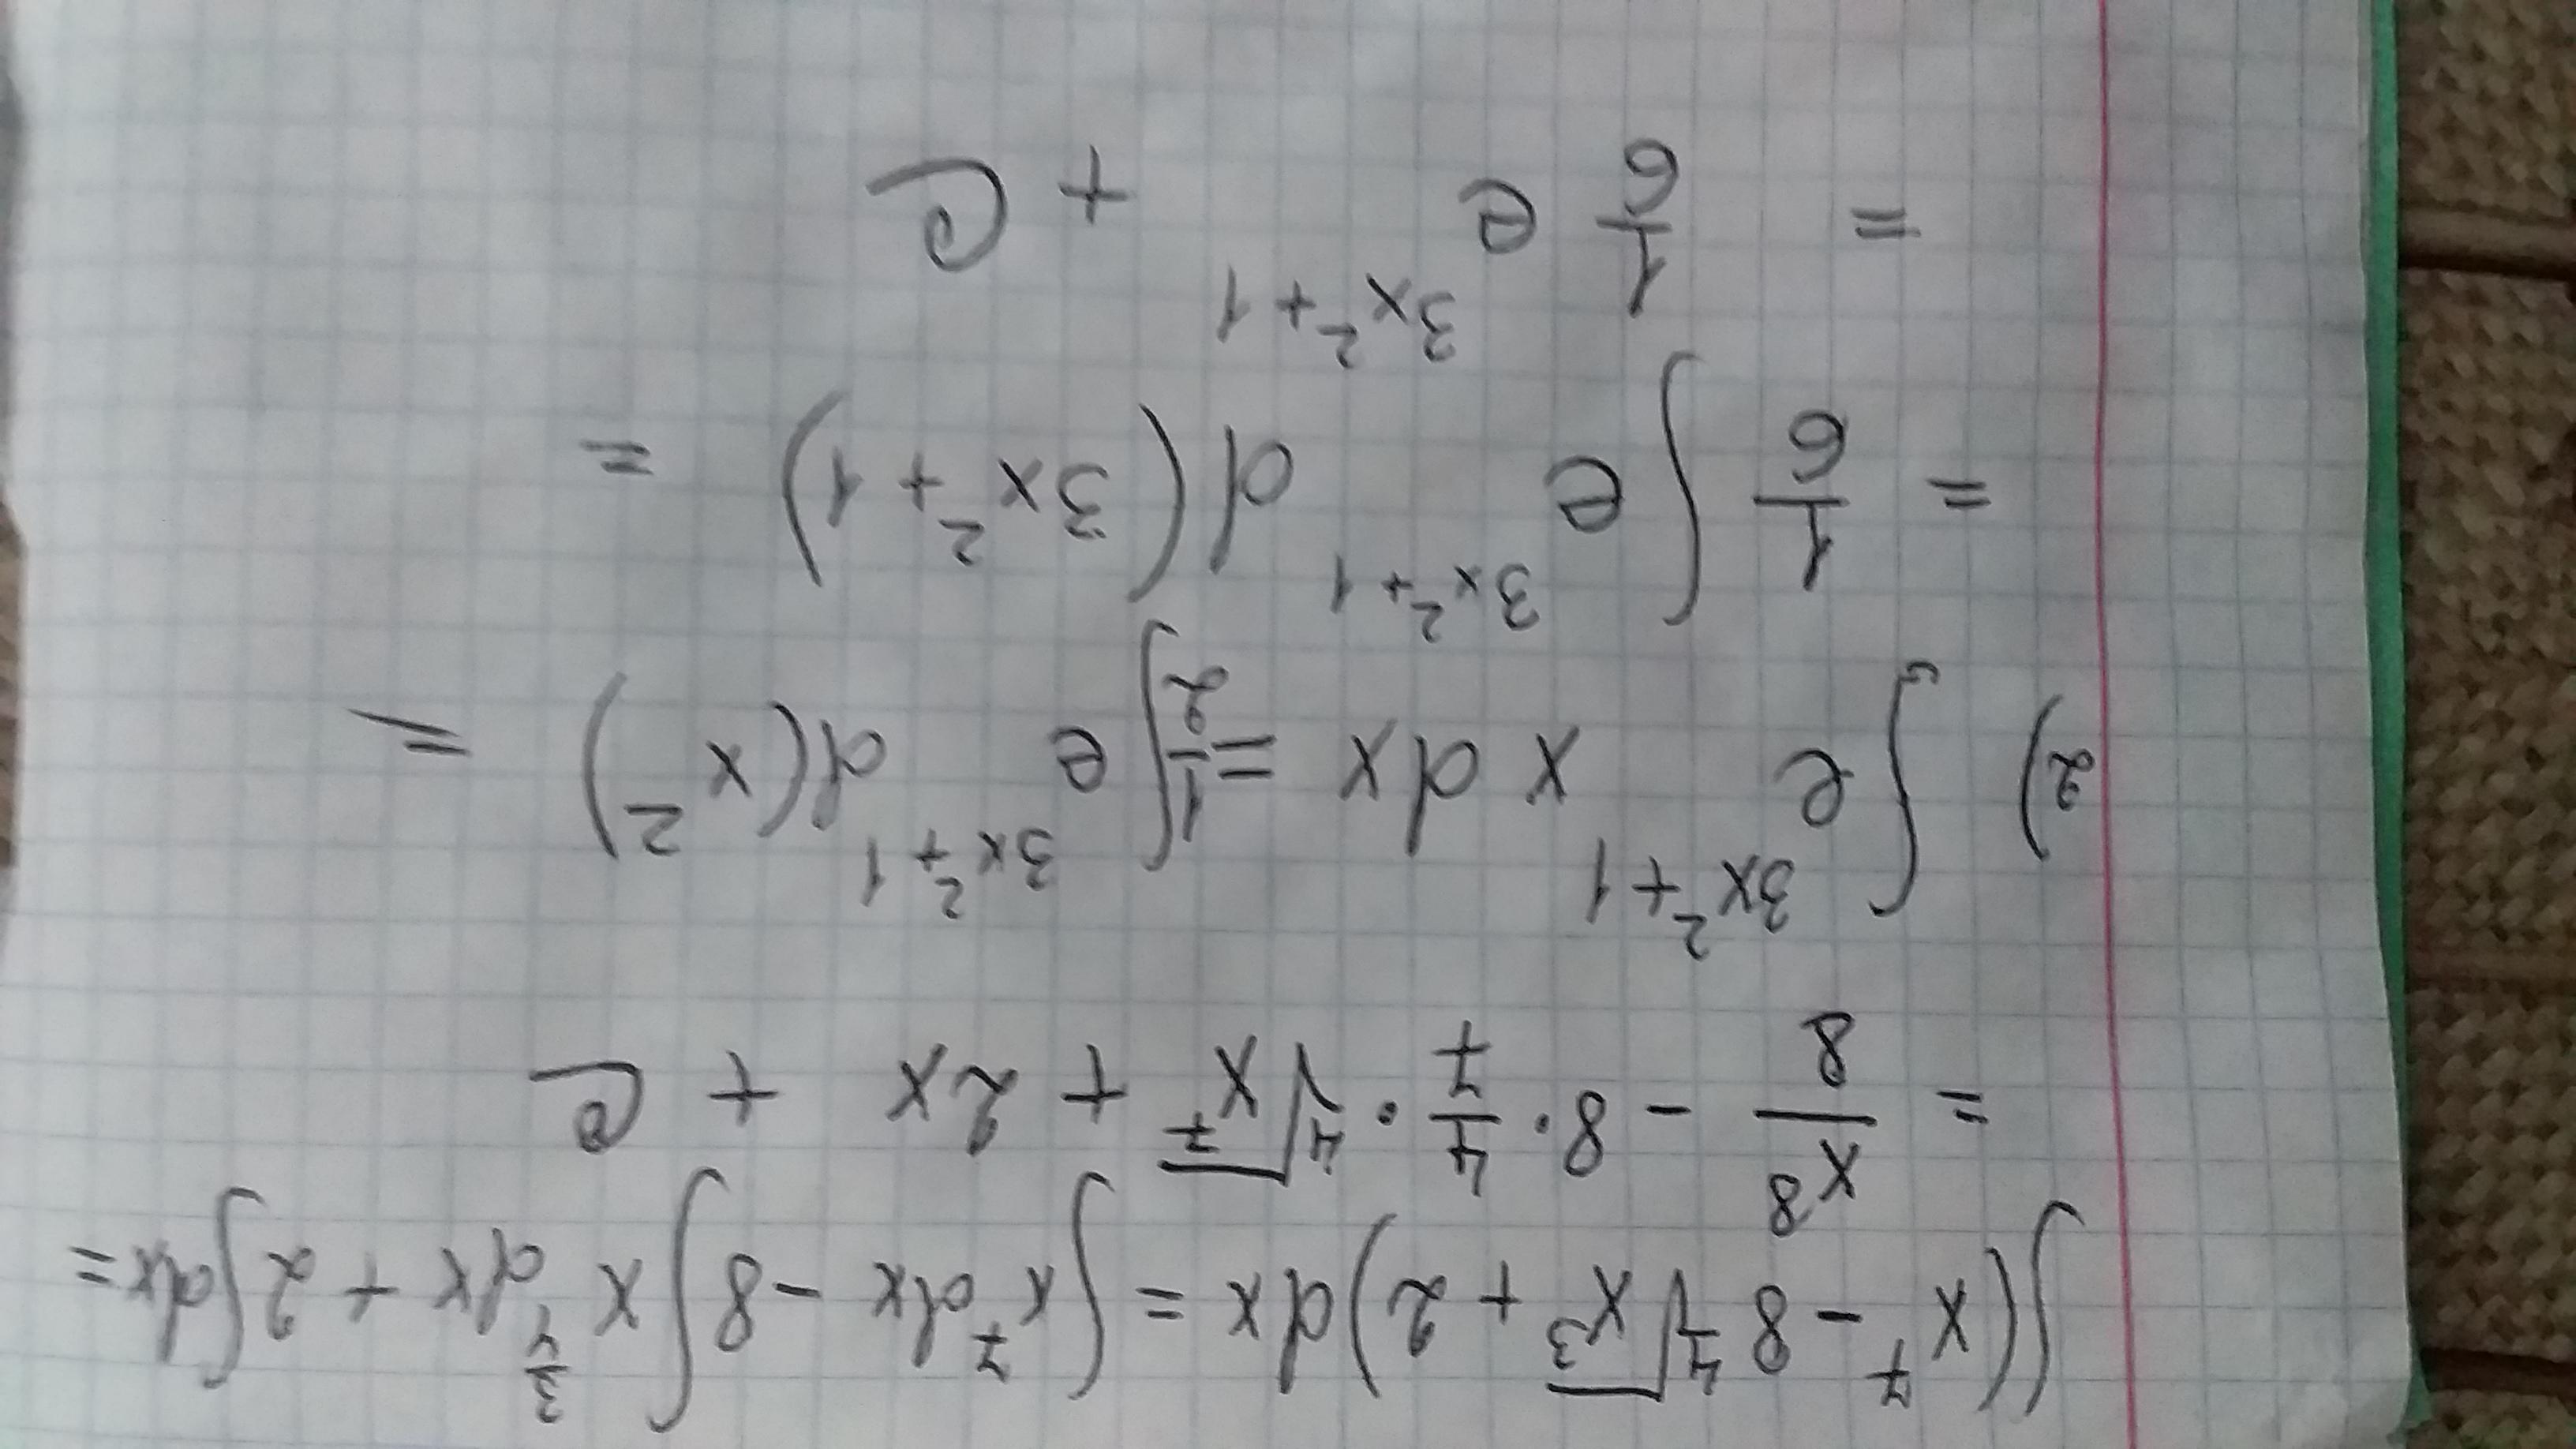 ∫(x⁷ - 8∜x³ + 2)dx = ∫x⁷dx - 8∫x^(3/4)dx + 2∫dx =
= x⁸/8 - 8 · 4/7 · ∜x⁷ + 2x + C
2) ∫e^(3x²+1) x dx = 1/2 ∫e^(3x²+1) d(x²) =
= 1/6 ∫e^(3x²+1) d(3x²+1) =
= 1/6 e^(3x²+1) + C